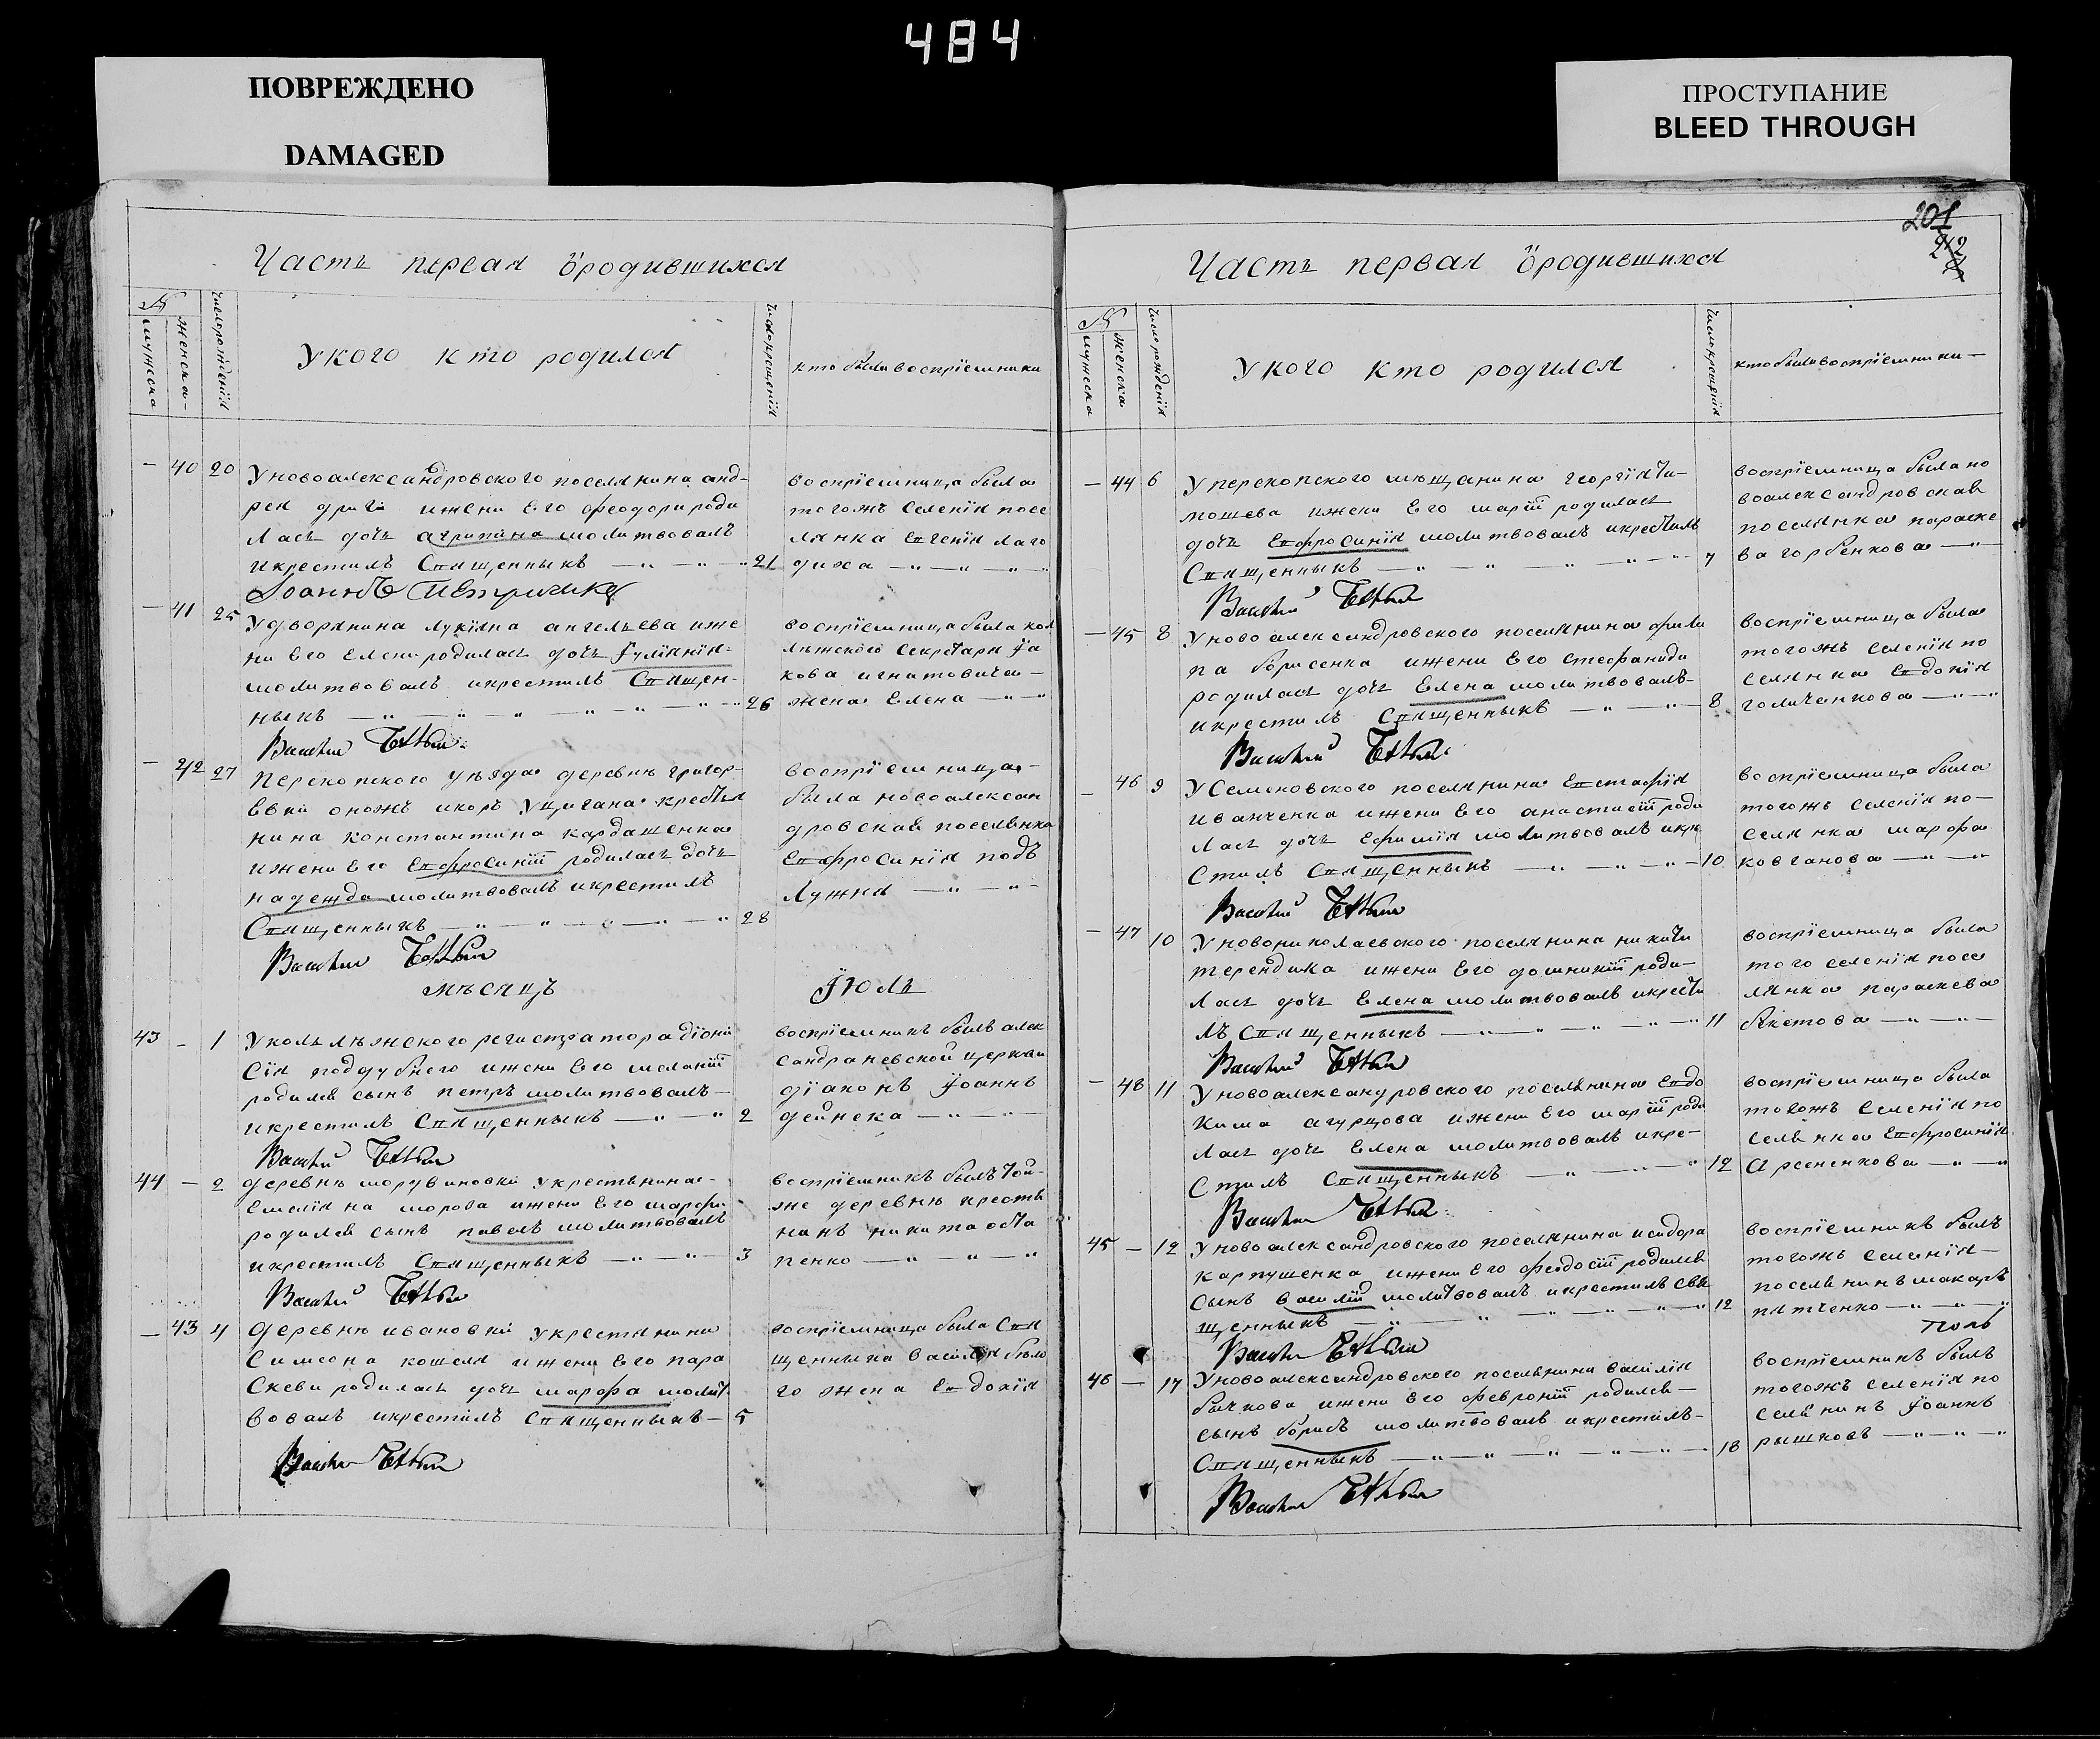 484
ПОВРЕЖДЕНО
DAMAGED
ПРОСТУПАНИЕ
BLEED THROUGH
Часть первая ӧродившихся
№
мужеска
женска-
число рожденія
У кого кто родился
число крещенія
кто были воспріемники
— 40 20 У новоалександровскаго поселянина анд-
рея дриги и жены Его феодоры роди
лась дочь агрипина молитвовалъ
и крестилъ Священникъ — „ — „ — „ 21
Іоаннъ
воспріемница была
тогожъ селенія посе
лянка Евгенія лаго
диха — „ — „ — „
— 41 25 У дворянина лукіана ангельева и же
ны Его Елены родилась дочь Іуліянія-
молитвовалъ и крестилъ Священ-
никъ — „ — „ — „ — „ — „ 26
Василій Бѣлый
воспріемница была кол
лѣжского секретаря Іа
кова игнатовича —
жена Елена — „ — „
— 42 27 Перекопского уѣзда деревнѣ григор-
Евки оножъ икоръ У цигана крестья
нина константина кардашенка
и жены Его Евфросиніи родилась дочь
надежда молитвовалъ и крестилъ
Священникъ — „ — „ — „ — „ 28
Василій Бѣлый
воспріемница-
была новоалексан
дровская поселянка
Евфросинія подъ
лужня — „ — „ -
мѣсяцъ Іюль
43 — 1 У колѣжского регистратора діони
сія поддубнего и жены Его меланіи
родился сынъ петръ молитвовалъ-
и крестилъ Священникъ — „ — „ 2
Василій Бѣлый
воспріемникъ былъ алек
сандраневской церкви
діаконъ Іоаннъ
дейнека — „ — „ —
44 — 2 деревнѣ мордвиновки У крестьнина-
Емеліяна мороза и жены Его марфы
родился сынъ павелъ молитвовалъ
и крестилъ Священникъ — „ — „ — 3
Василій Бѣлый
воспріемникъ былъ той-
же деревнѣ кресть
нинъ никита оста
пенко — „ — „ — „
— 43 4 деревнѣ ивановки У крестянина
Симеона кошеля и жены Его пара
скевы родилась дочь марфа молит
вовалъ и крестилъ Священникъ — 5
Василій Бѣлый
воспріемница была Свя
щенника василія бѣло
го жена Евдокія
201
212
Часть первая ӧродившихся
№
мужеска
женска
число рожденія
У кого кто родился
число крещенія
кто были воспріемники —
— 44 6 У перекопского мѣщанина георгія ти-
мошева и жены Его маріи родилась
дочь Евфросинія молитвовалъ и крестилъ
Священникъ — „ — „ — „ — „ — „ 7
Василій Бѣлый
воспріемница была но
воалександровская
поселянка параске
ва горбенкова — „ —
— 45 8 У новоалександровского поселянина фили
па борисенка и жены Его стефаниды
родилась дочь Елена молитвовалъ-
и крестилъ Священникъ — „ — „ — 8
Василій Бѣлый
воспріемница была
тогожъ селенія по
селянка Евдокія
голиченкова — „ — „
— 46 9 У Семеновского поселянина Евстафія
иванченка и жены Его анастасіи роди
лась дочь Ефимія молитвовалъ и кре
стилъ Священникъ — „ — „ — „ — 10
Василій Бѣлый
воспріемница была
тогожъ селенія по —
селянка марфа
ковганова — „ — „
— 47 10 У новониколаевского поселянина никиты
терендика и жены Его домникіи роди-
лась дочь Елена молитвовалъ и крести
лъ Священникъ — „ — „ — „ — „ — „ 11
Василій Бѣлый
воспріемница была
того селенія посе
лянка параскева
бекетова — „ — „ —
— 48 11 У новоалександровского поселянина Евдо
кима агурцова и жены Его маріи роди
лась дочь Елена молитвовалъ и кре-
стилъ Священникъ — „ — „ — „ 12
Василій Бѣлый
воспріемница была
тогожъ селенія по
селянка Евфросинія
Арсененкова — „ — „
45 — 12 У новоалександровского поселянина исидора
карпушенка и жены Его феодосіи родился
сынъ василій молитвовалъ и крестилъ свя
щенникъ — „ — „ — „ — „ — „ 12
Василій Бѣлый
воспріемникъ былъ
тогожъ селенія —
поселянинъ макаръ
пятченко — „ — „ — „
46 — 17 У новоалександровского поселянина василія
бычкова и жены Его февроніи родился —
сынъ борисъ молитвовалъ и крестилъ-
Священникъ — „ — „ — „ — „ — „ — 18
Василій Бѣлый
воспріемникъ былъ
тогожъ селенія по
селянинъ Іоаннъ
рышковъ — „ — „ — „